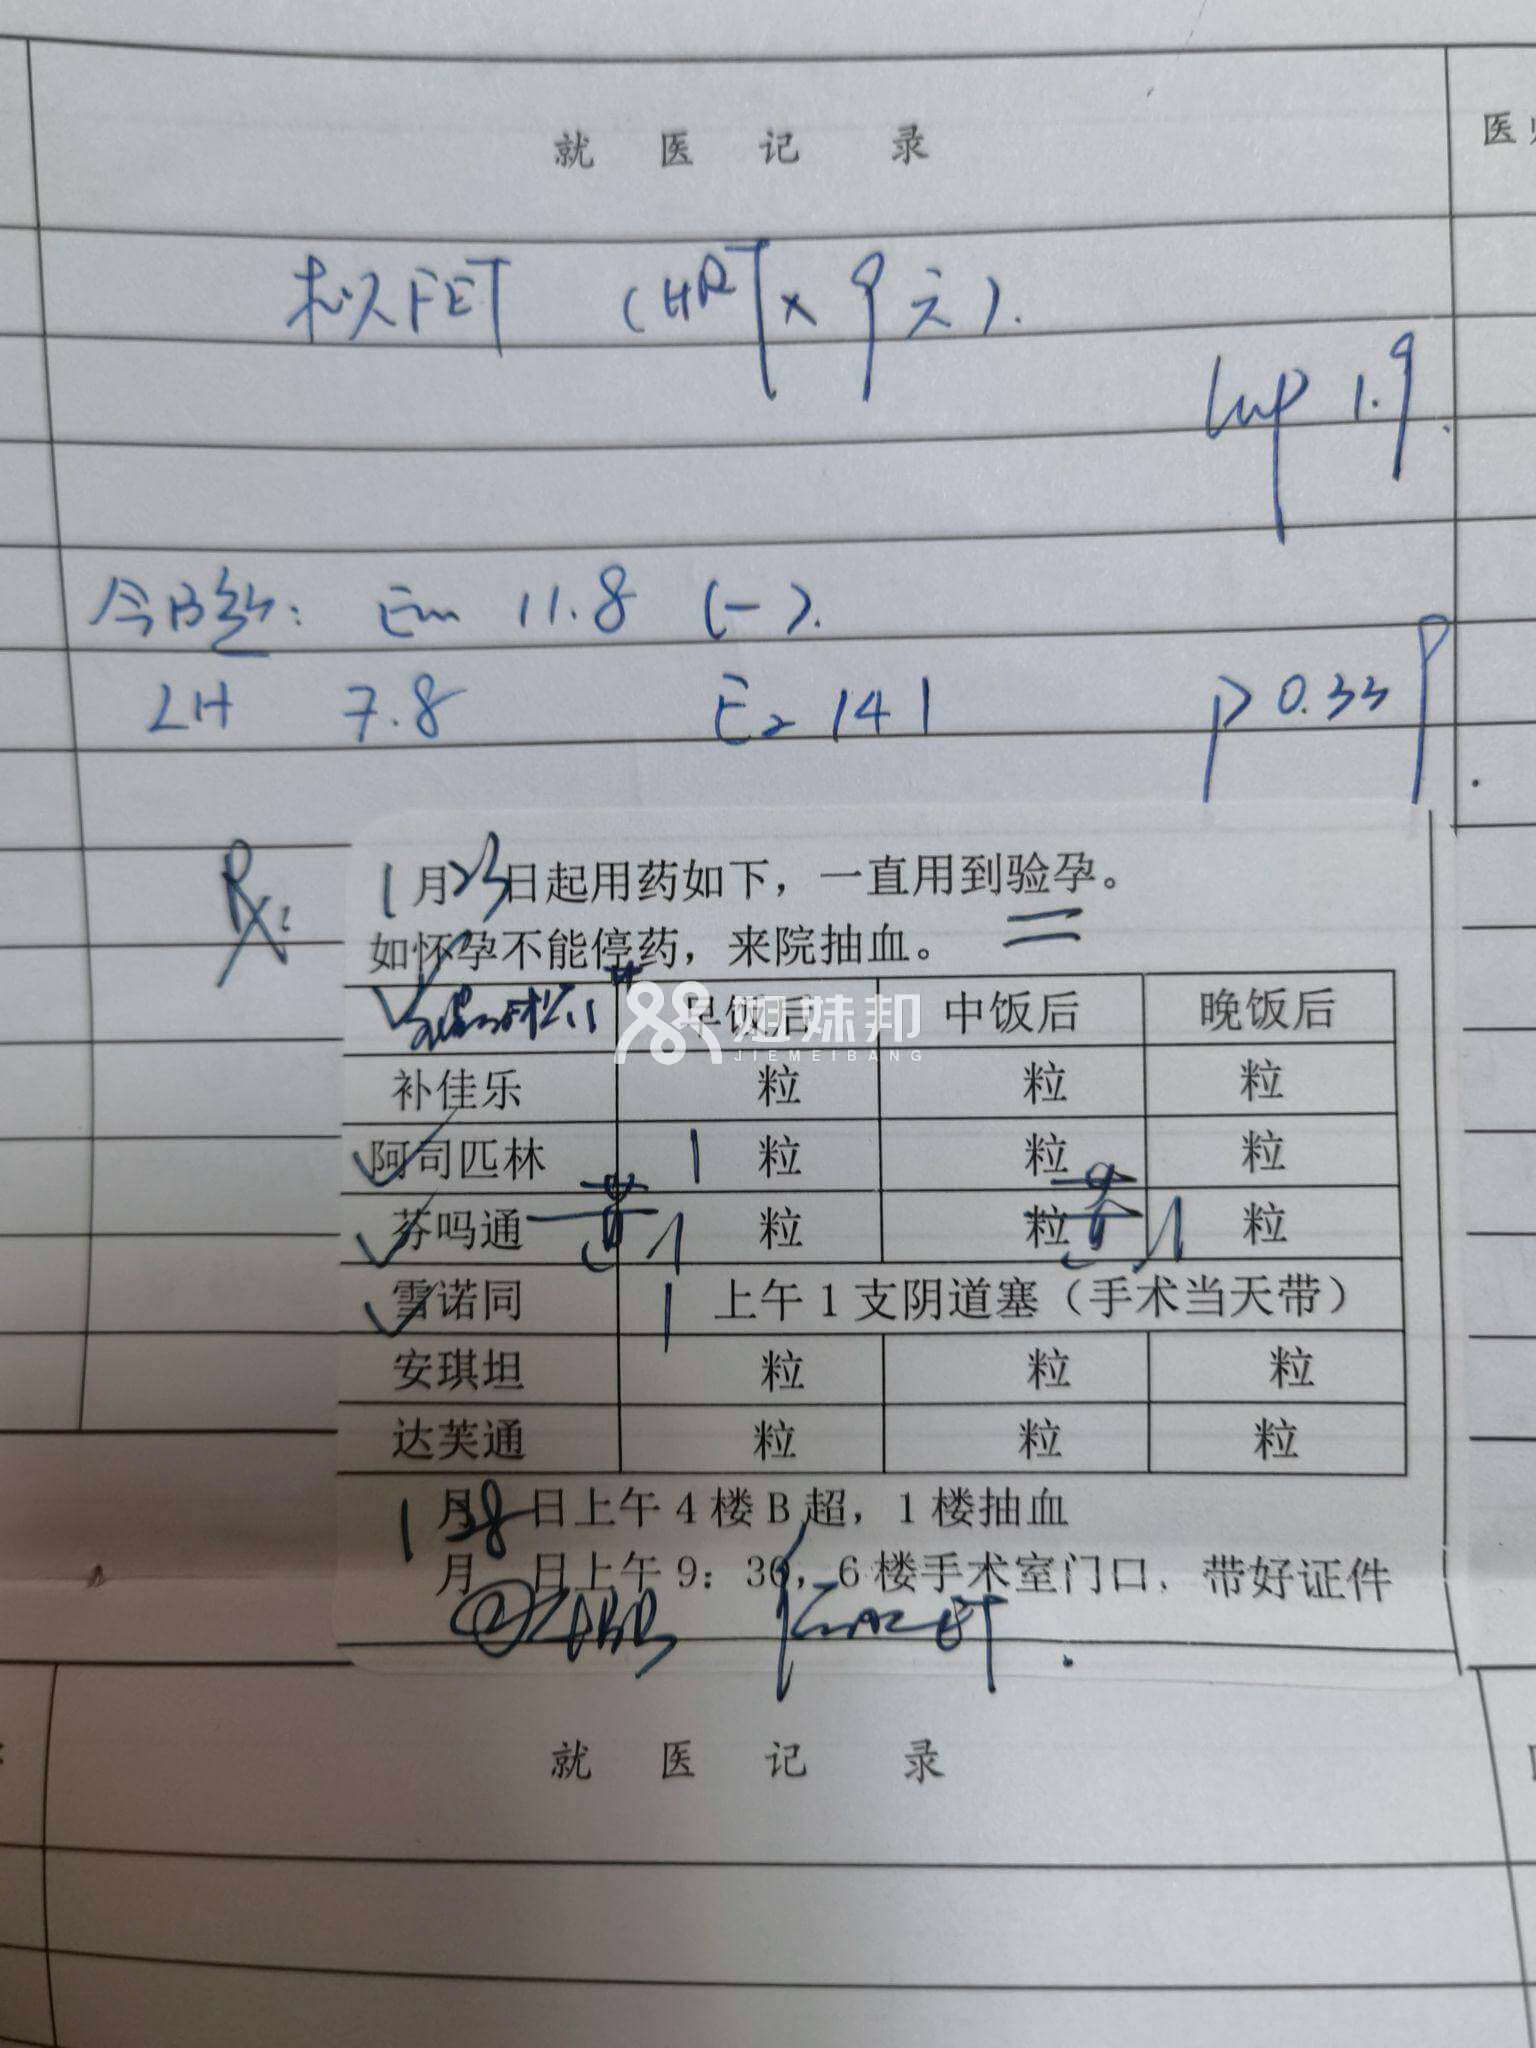 就医记录
医
拟FET (HRT×9天).
lmp 1.9.
今B超: Em 11.8 (-).
LH 7.8 E₂ 141 P 0.339.
Rx:
1月23日起用药如下，一直用到验孕。
如怀孕不能停药，来院抽血。
早饭后 中饭后 晚饭后
姐妹邦
JIEMEIBANG
补佳乐 粒 粒 粒
阿司匹林 1 粒 粒 粒
芬吗通 黄 1 粒 粒 黄 1 粒
雪诺同 1 上午1支阴道塞（手术当天带）
安琪坦 粒 粒 粒
达芙通 粒 粒 粒
1月28日上午4楼B超，1楼抽血
月 日上午9：30，6楼手术室门口，带好证件
②4BB
就医记录